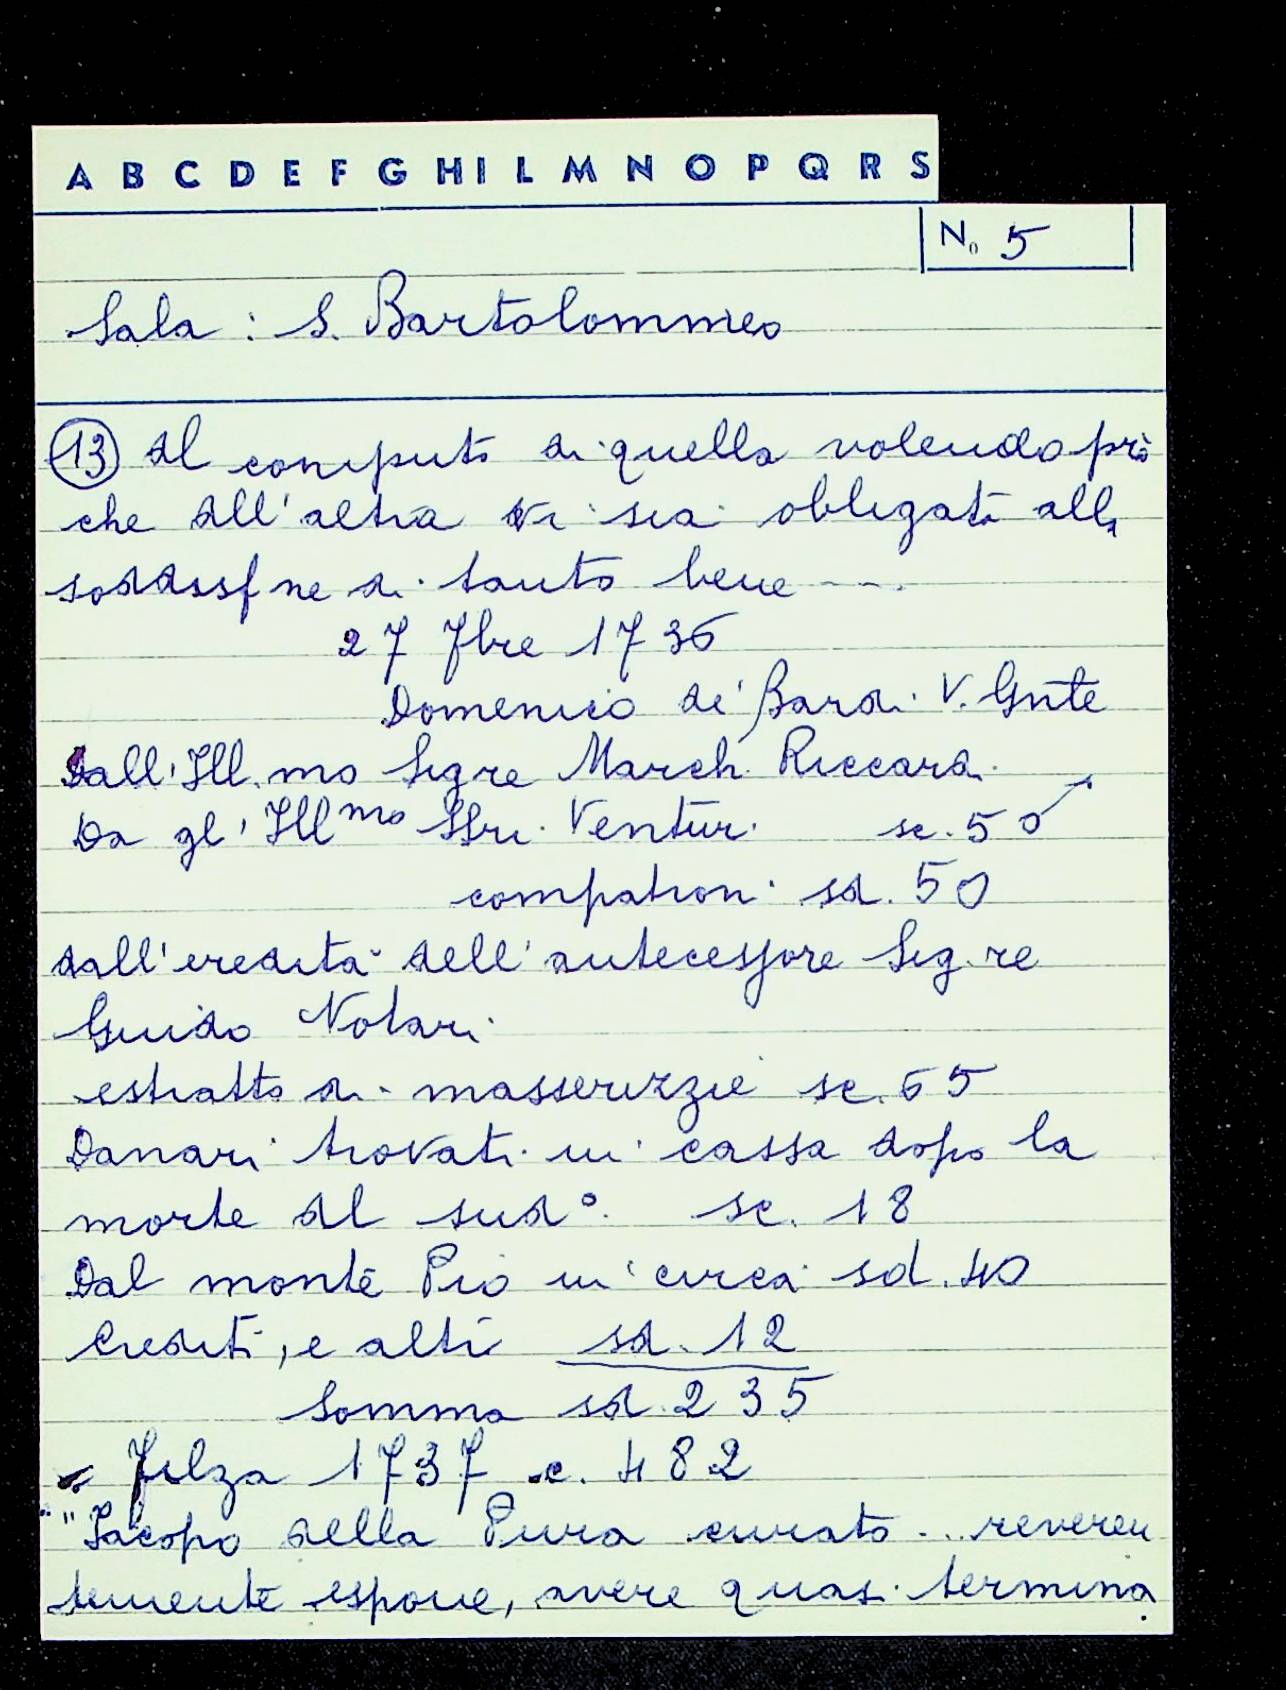 A B C D E F G H I L M N O P Q R S
No 5
Sala : S. Bartolommeo
(13) al computo di quella volendo più
che all'altra vi sia obligati alla
soddisf ne di tanto bene ---.
27 7bre 1736
Domenico de' Bardi V. Gnte
Dall'Ill.mo Sigre March. Riccardi
Da gl' Ill mo SSri Venturi sc. 50
compatroni sd. 50
dall'eredità dell'antecessore Sig.re
Guido Notari
estratto di masserizzie sc. 65
Danari trovati in cassa dopo la
morte del sud°. sc. 18
Dal monte Pio in circa sd. 40
Crediti, e altri sd. 12
Somma sd. 235
Filza 1737 c. 482
"Jacopo della Pura curato ... reveren
temente espone, avere quasi termina